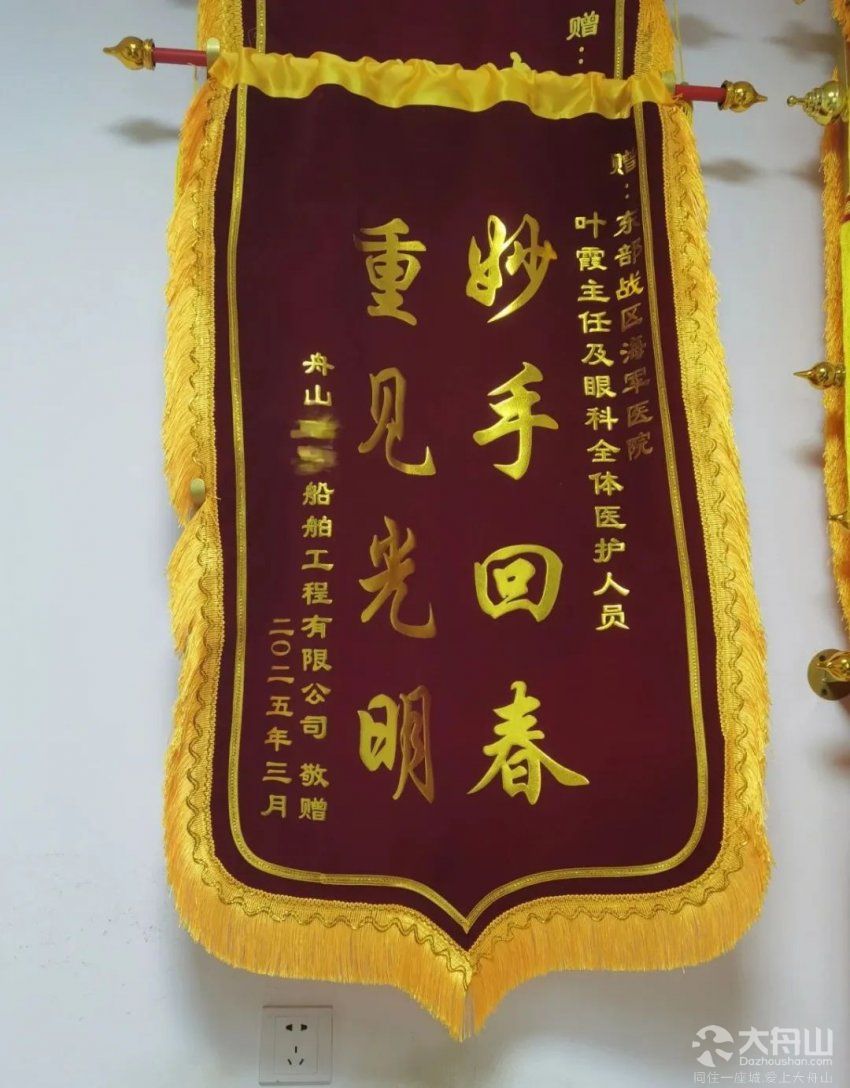 赠：
赠：东部战区海军医院
叶霞主任及眼科全体医护人员
妙手回春
重见光明
舟山船舶工程有限公司 敬赠
二〇二五年三月
大舟山
Dazhoushan.com
同住一座城,爱上大舟山